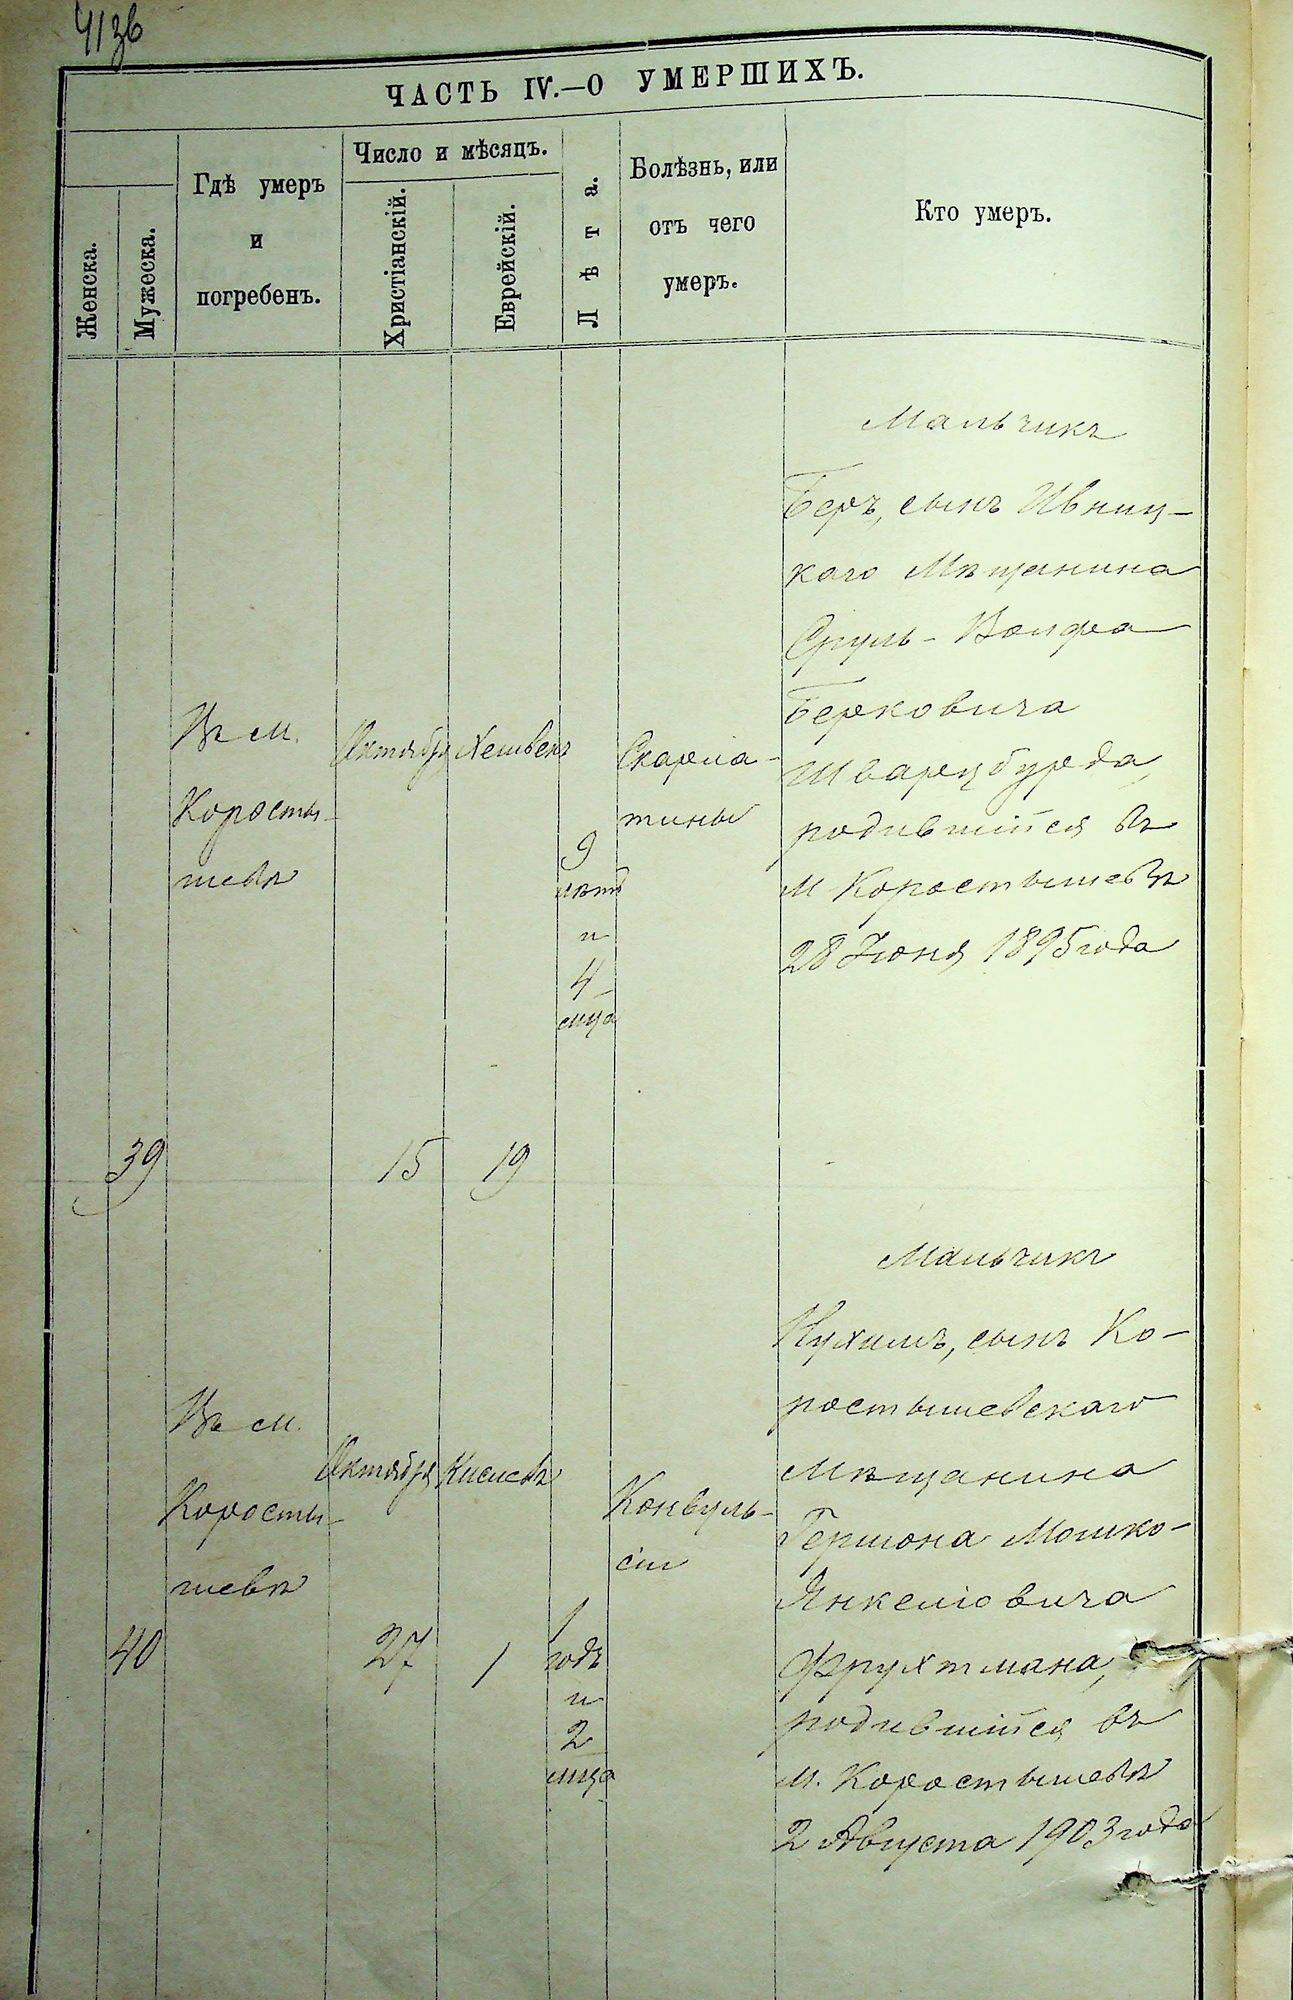 ЧАСТЬ IV.—О УМЕРШИХЪ.
Женска.
Мужеска.
Гдѣ умеръ
и
погребенъ.
Число и мѣсяцъ.
Христіанскій.
Еврейскій.
Лѣта.
Болѣзнь, или
отъ чего
умеръ.
Кто умеръ.
39
Въ м.
Коросты-
шевѣ
Октября
15
Хешвенъ
19
9
лѣтъ
и
4
Скарла-
тины
Мальчикъ
Беръ, сынъ Ивниц-
каго Мѣщанина
Сруль-Волфа
Берковича
Шварцбурда,
родившійся въ
м Коростышевѣ
28 Іюня 1895 года
40
Въ м.
Коросты-
шевѣ
Октября
27
Кислевъ
1
1
годъ
и
2
мца
Конвуль-
сіи
Мальчикъ
Нухимъ, сынъ Ко-
ростышевскаго
Мѣщанина
Гершона Мошко-
Янкелювича
Фрухтмана,
родившійся въ
м. Коростышевѣ
2 Августа 1903 года